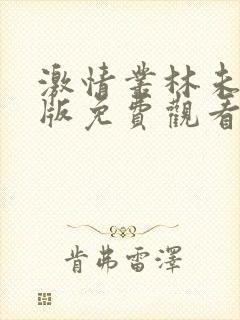 激情叢林未
版免費觀看
肯弗雷澤